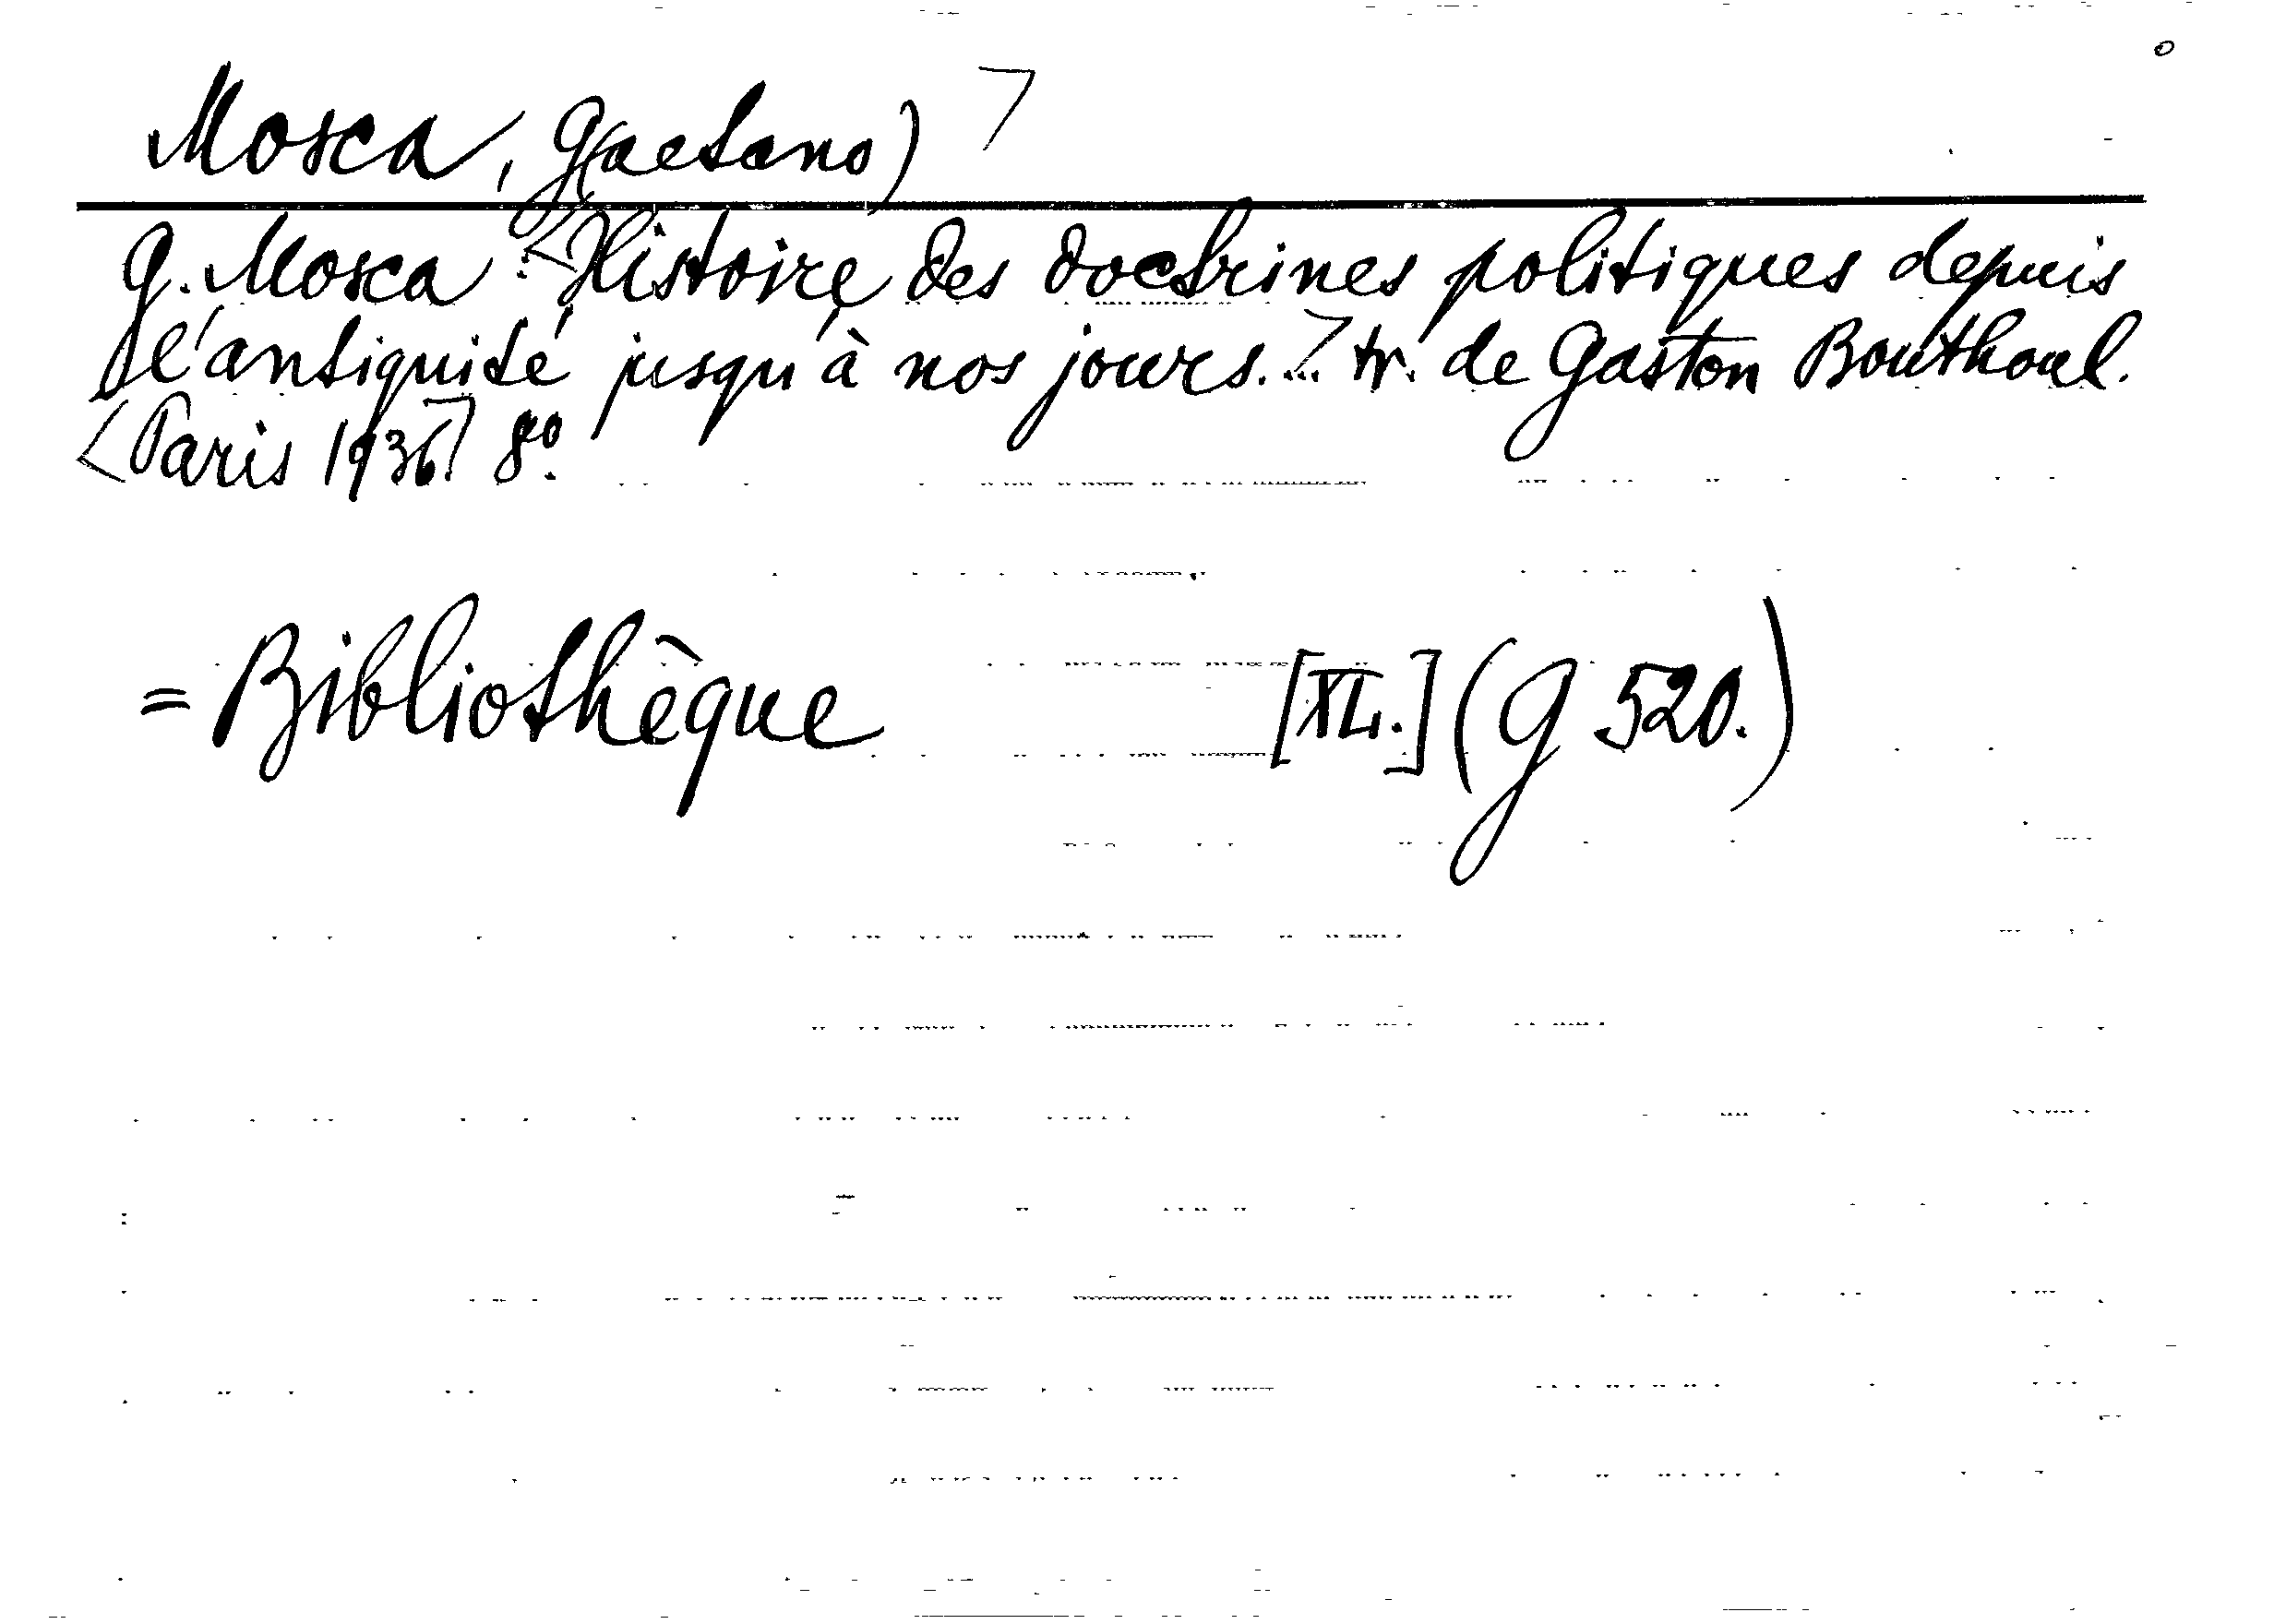 Mosca, G(aetano)
G. Mosca: Histoire des doctrines politiques depuis
l'antiquité jusqu'à nos jours. ... tr. de Gaston Bouthoul.
Paris 1936. 8º.
= Bibliothèque [XL.] (G 520.)